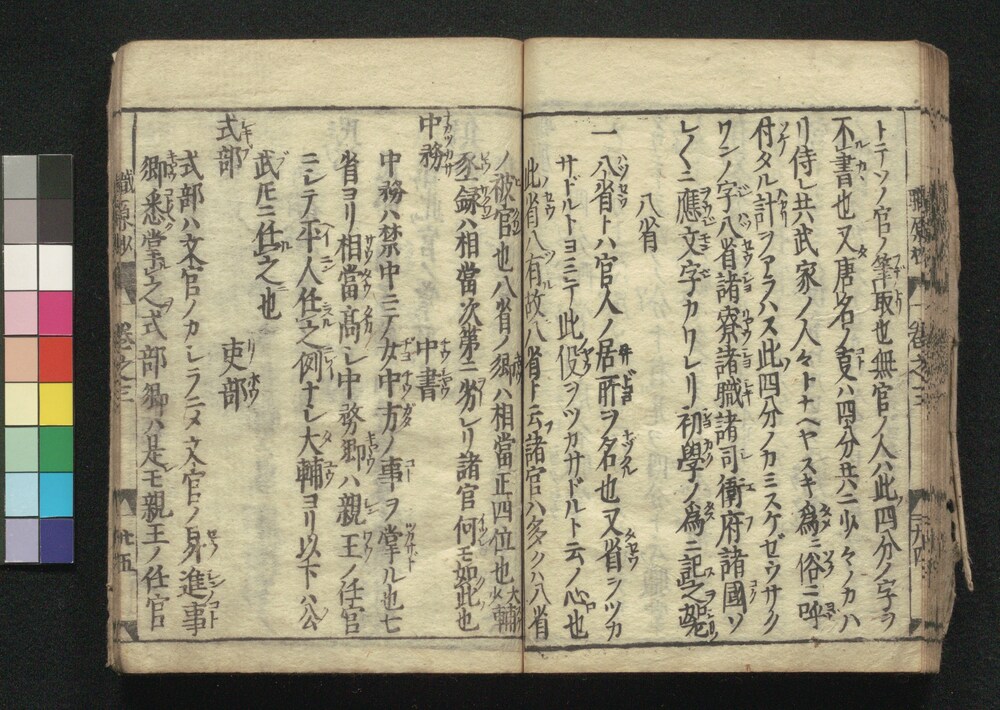 トテソノ官ノ筆取也無官ノ人ハ此四分ノ字ヲ
不書也又唐名ノ夏ハ四分共ニ少々ノカハ
リ侍レ共武家ノ人々トナヘヤスキ為ニ俗ニ呼
付タル計ヲアラハス此四分ノカミスケゼウサク
ワンノ字八省諸寮諸職諸司衛府諸國ソ
レ〱ニ應文字カワレリ初學ノ為ニ記之
八省
一八省トハ官人ノ居所ヲ名也又省シツカ
サドルトヨミテ此役ヲツカサドルト云ノ心也
此省八有故八省ト云諸官ハ多クハ八省
ノ被官也八省ノ卿ハ相當正四位也大輔少輔
丞録ハ相當次第ニ劣レリ諸官何モ如此也
中務 中書
中務ハ禁中ニテ女中方ノ事ヲ掌ル也七
省ヨリ相當高シ中務卿ハ親王ノ任官
ニシテ平人任之例ナシ大輔ヨリ以下ハ公
武トモニ任之也
式部 吏部
式部ハ文官ノカシラニメ文官ノ昇進事
卿悉掌之式部卿ハ是モ親王ノ任官
職原抄 巻之三 廿五